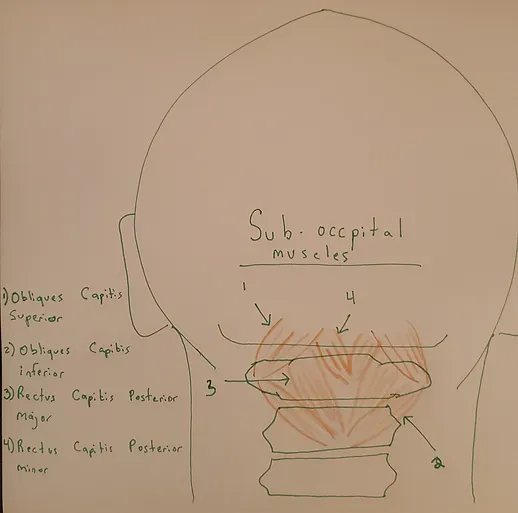 Sub-occpital
muscles
1
4
1) Obliques Capitis
Superior
2) Obliques Capitis
inferior
3
3) Rectus Capitis Posterior
Major
4) Rectus Capitis Posterior
minor
2